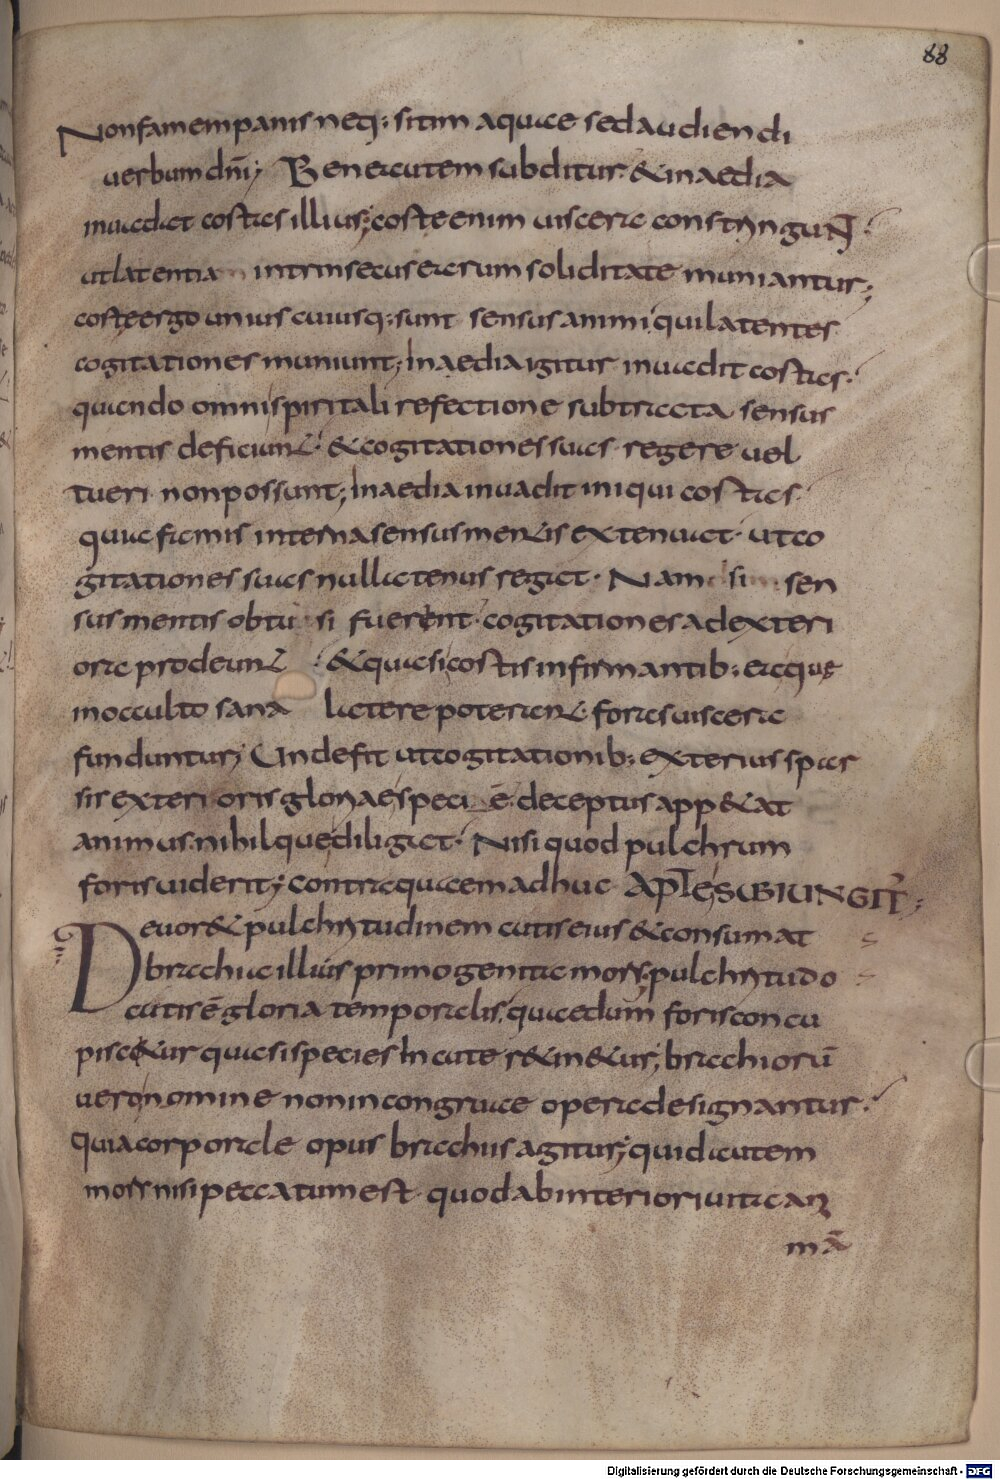 88
Non famem panis neq; sitim aquae sed audiendi
uerbum dñi; Bene autem subditur & inaedia
inuadet costas illius; costae enim uiscera constringuɴ̄t·
ut latentia intrinsecus earum soliditate muniantur;
costae ergo unius cuiusq; sunt sensus animi qui latentes
cogitationes muniunt; Inaedia igitur inuadit costas·
quando omni spiritali refectione subtracta sensus
mentis deficiunt· & cogitationes suas regere uel
tueri non possunt; Inaedia inuadit iniqui costas
quia famis interna sensus mentis extenuat· ut co
gitationes suas nullatenus regat· Nam si sen
sus mentis obtusi fuerint· cogitationes ad exteri
ora prodeunt & quasi costis infirmantib; eaque
in occulto sana latere poterant· foras uiscera
funduntur; Unde fit ut cogitationib; exterius spar
sis exterioris gloriae speciē deceptus app&at
animus· nihilque diligat· Nisi quod pulchrum
foris uiderit; contra quaem adhuc APTE SUBIUNGITR̄;
Deuor& pulchritudinem cutis eius & consumat
brachia illius primogenita mors; pulchritudo
cutis ē gloria temporalis, quae dum foris concu
pisc&ur quasi species in cute r&in&ur; brachiorū
uero nomine non incongruae opera designantur·
quia corporale opus brachiis agitur; quid autem
mors nisi peccatum est· quod ab interiori uita an
mā
Digitalisierung gefördert durch die Deutsche Forschungsgemeinschaft - DFG